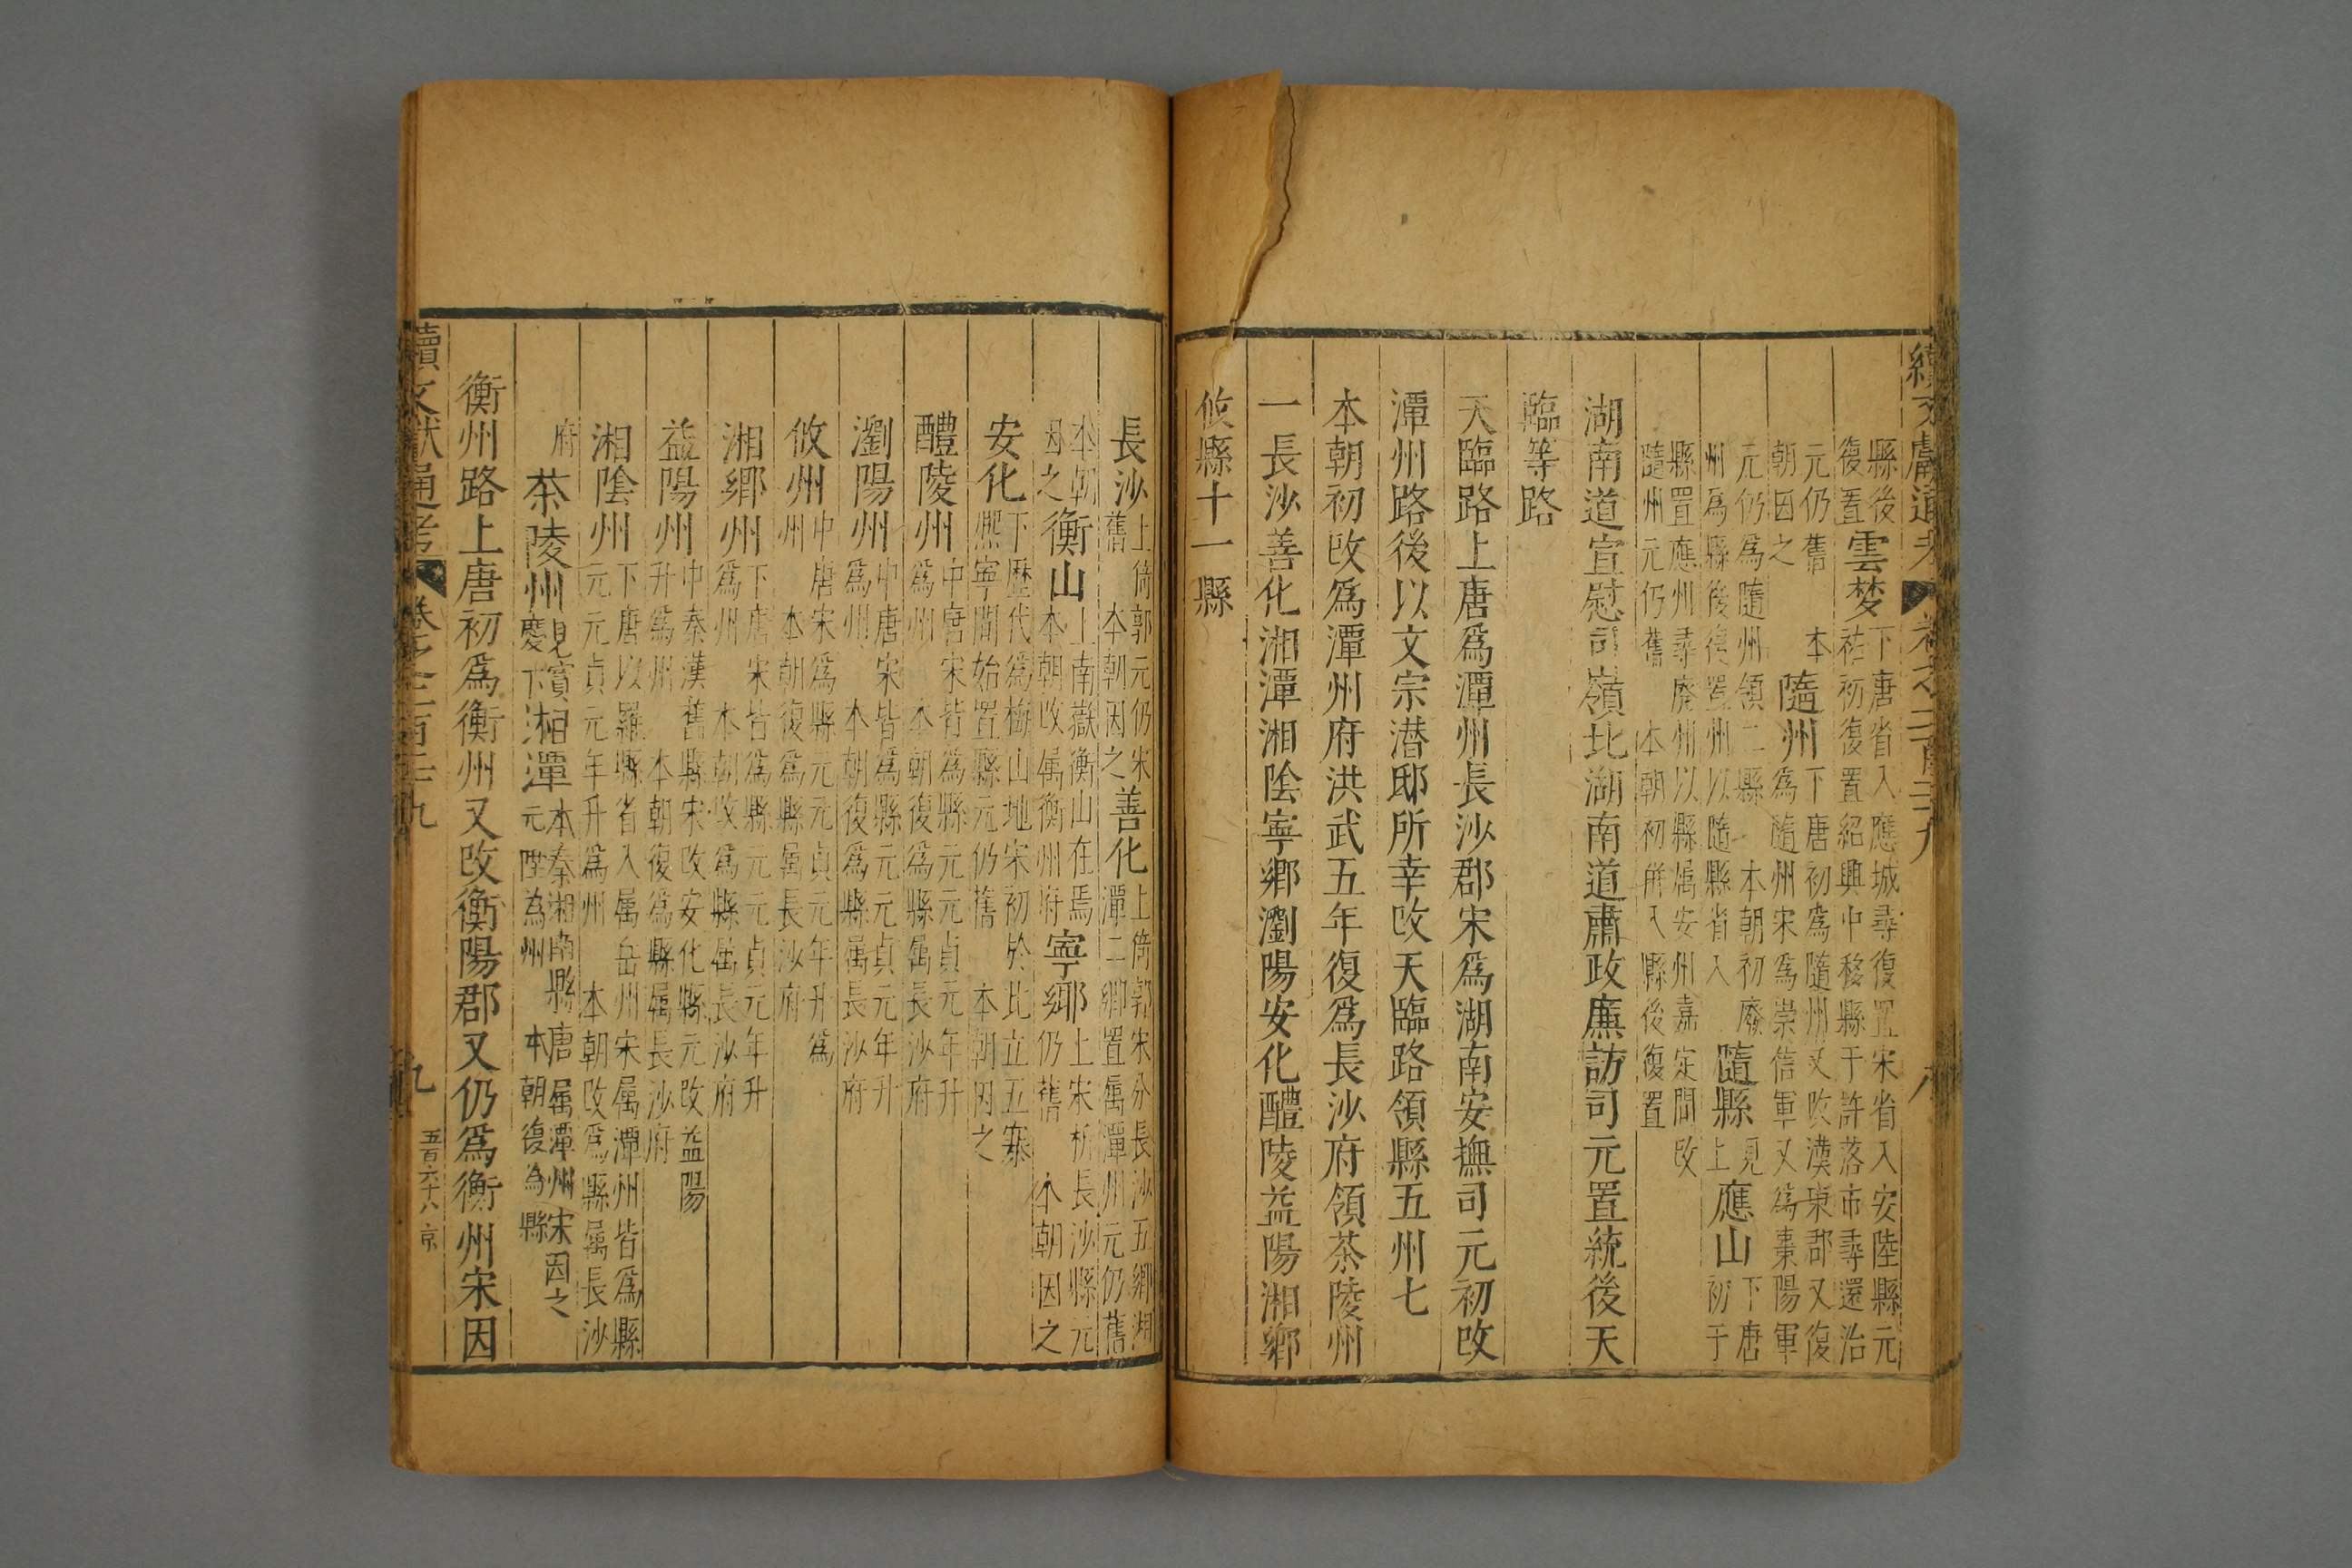 縣後
復置
雲夢
下唐省入應城尋復置宋省入安陸縣元
祐初復置紹興中移縣于許落市尋還治
元仍舊
本
朝因之
隨州
下唐初爲隨州又改漢東郡又復
爲隨州宋爲崇信軍又爲棗陽軍
元仍爲隨州領二縣 本朝初廢
州爲縣後復置州以隨縣省入
隨縣
見上
應山
下唐初于
縣置應州尋廢州以縣屬安州嘉定間改
隨州元仍舊 本朝初併入縣後復置
湖南道宣慰司嶺北湖南道肅政廉訪司元置統後天
臨等路
天臨路上唐爲潭州長沙郡宋爲湖南安撫司元初改
潭州路後以文宗潜邸所幸改天臨路領縣五州七
本朝初改爲潭州府洪武五年復爲長沙府領茶陵州
一長沙善化湘潭湘陰寧鄉瀏陽安化醴陵益陽湘鄉
攸縣十一縣
長沙
上倚郭元仍宋
舊 本朝因之
善化
上倚郭宋分長沙五鄉湘
潭二鄉置屬潭州元仍舊
本朝
因之
衡山
上南嶽衡山在焉
本朝改屬衡州府
寧鄉
上宋析長沙縣元
仍舊 本朝因之
安化
下歷代爲梅山地宋初於此立五寨
熙寧間始置縣元仍舊 本朝因之
醴陵州
中唐宋皆爲縣元元貞元年升
爲州 本朝復爲縣屬長沙府
瀏陽州
中唐宋皆爲縣元元貞元年升
爲州 本朝復爲縣屬長沙府
攸州
中唐宋爲縣元元貞元年升爲
州 本朝復爲縣屬長沙府
湘鄉州
下唐宋皆爲縣元元貞元年升
爲州 本朝改爲縣屬長沙府
益陽州
中秦漢舊縣宋改安化縣元改益陽
升爲州 本朝復爲縣屬長沙府
湘陰州
下唐以羅縣省入屬岳州宋屬潭州皆爲縣
元元貞元年升爲州 本朝改爲縣屬長沙
府
茶陵州
見寶
慶下
湘潭
本秦湘南縣唐屬潭州宋因之
元陞為州 本朝復為縣
衡州路上唐初爲衡州又改衡陽郡又仍爲衡州宋因
續文獻通考
九
五百六十八
京